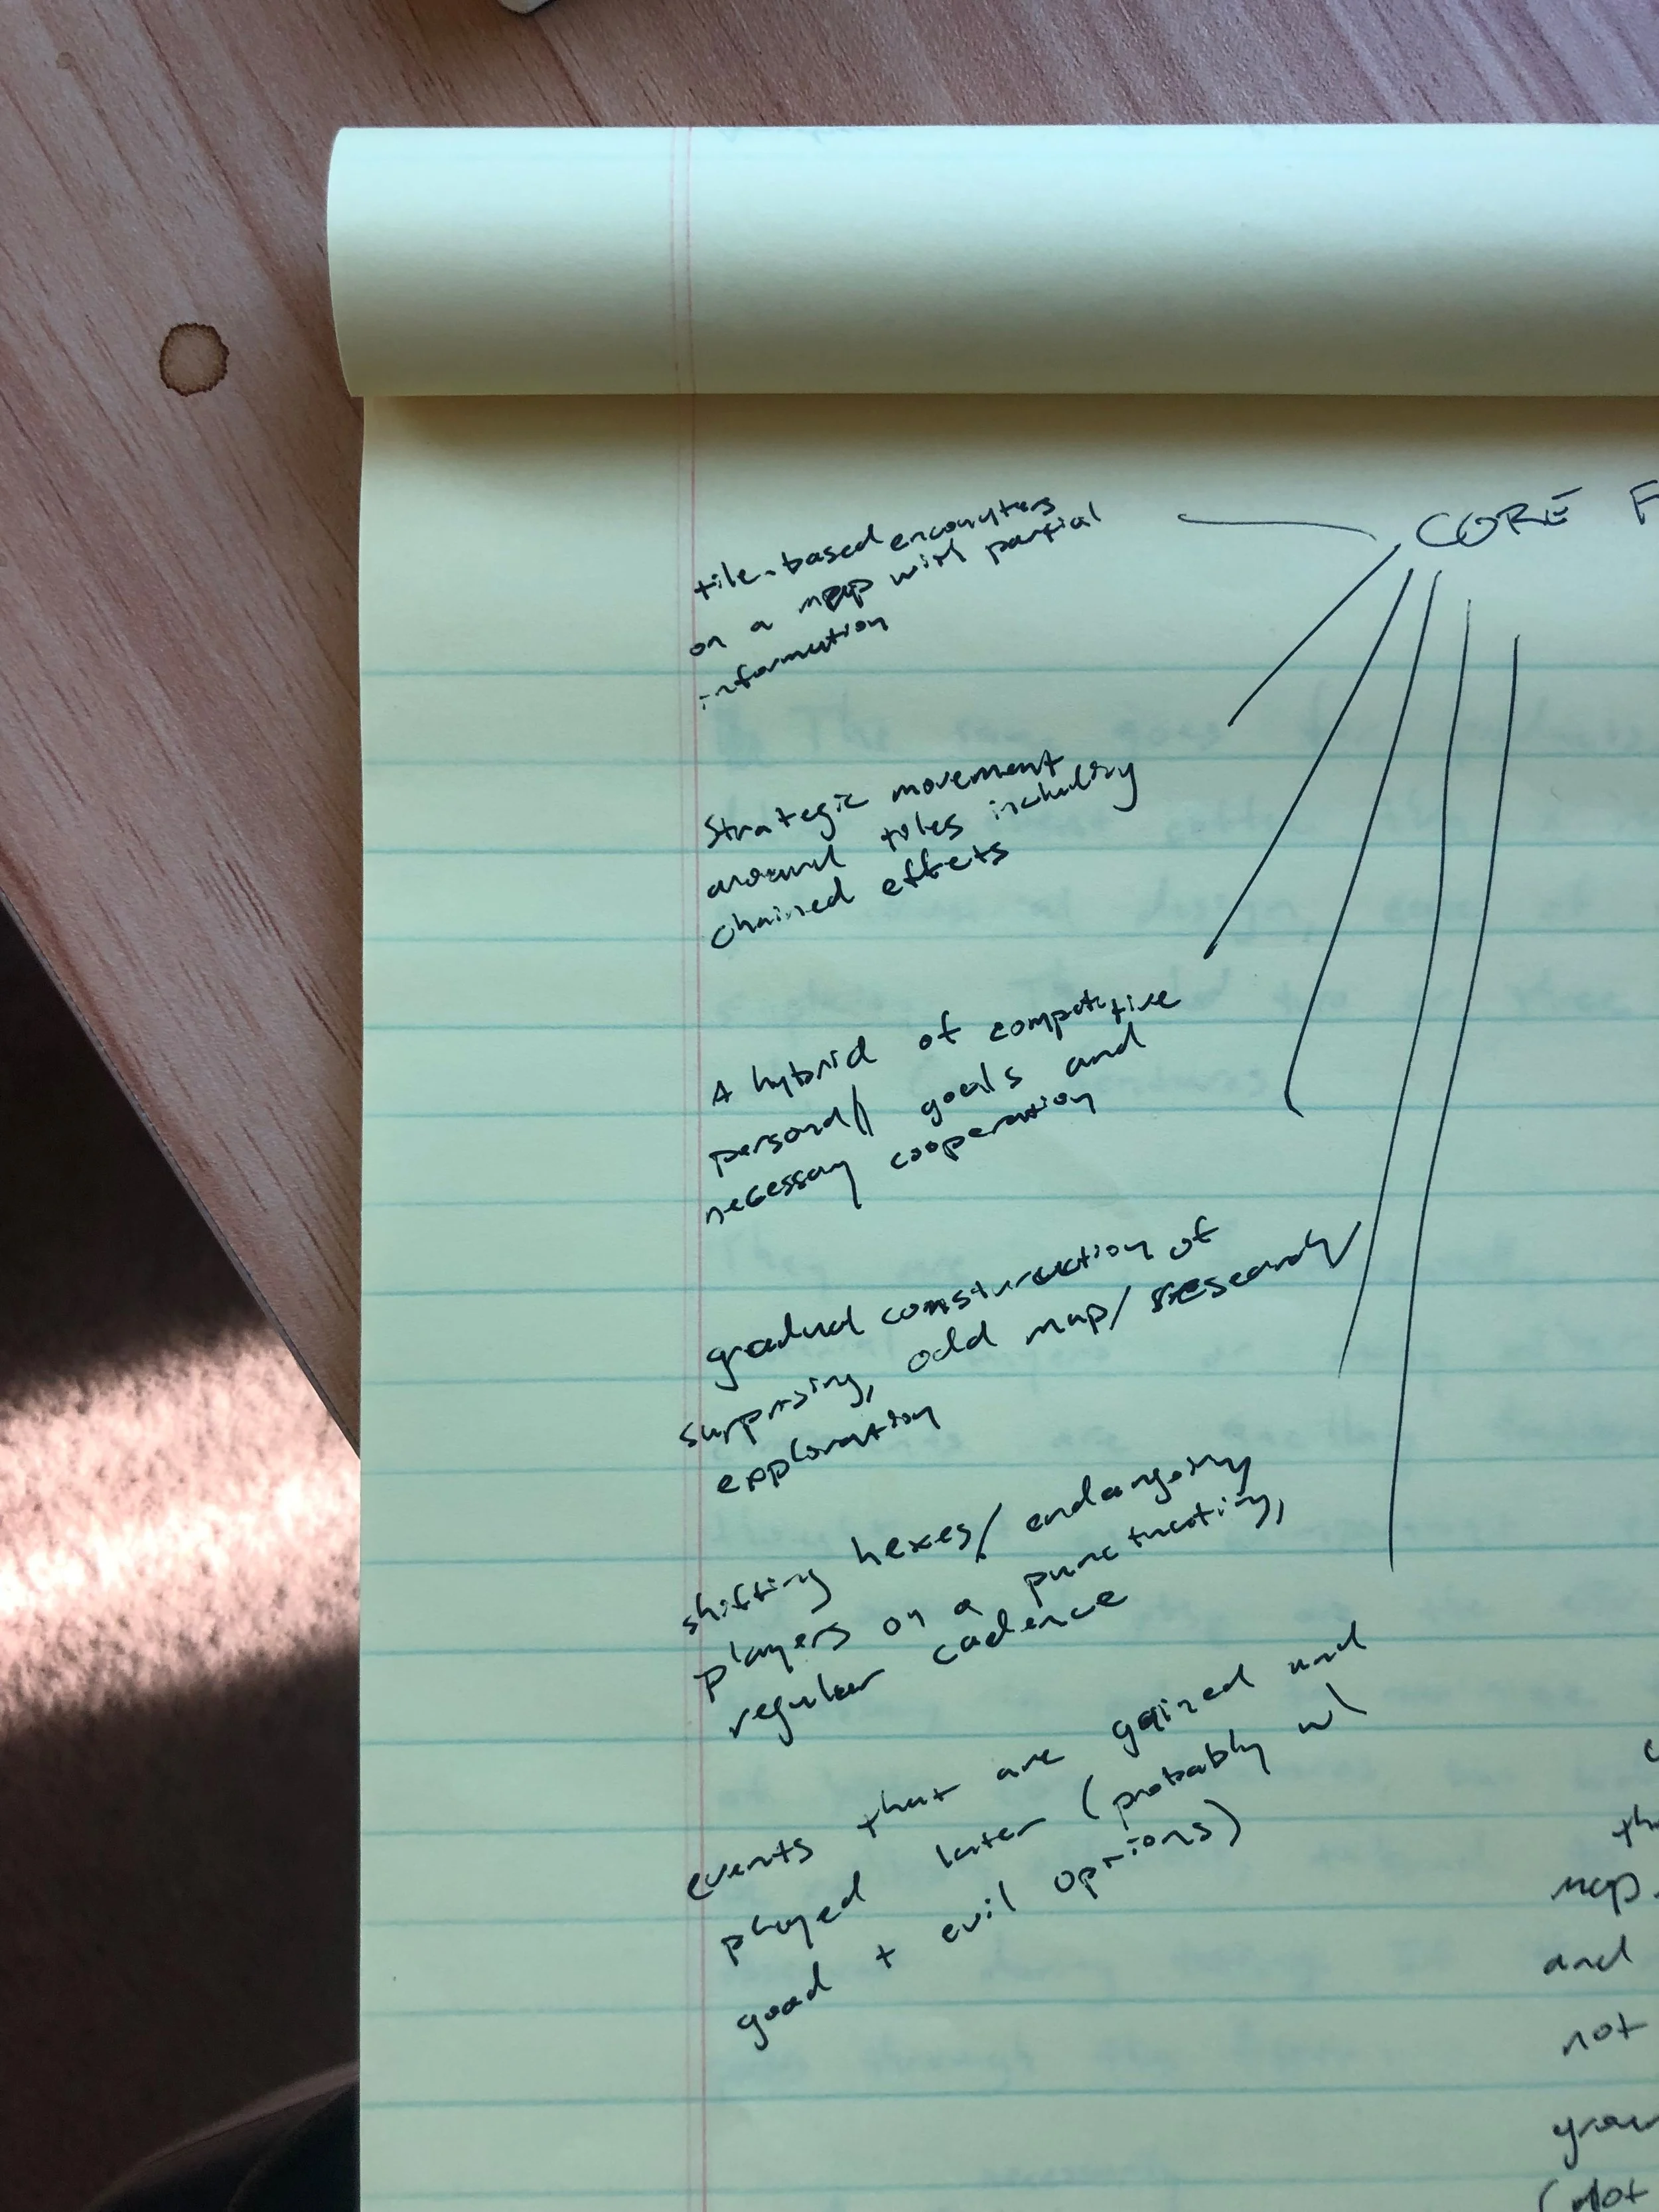 CORE F
tile-based encounters
on a map with partial
information
Strategic movement
around tiles including
chained effects
A hybrid of competitive
personal goals and
necessary cooperation
gradual construction of
surprising, odd map/research/
exploration
shifting hexes/endangering
players on a punctuating,
regular cadence
events that are gained and
played later (probably w/
good + evil options)
map.
and
not